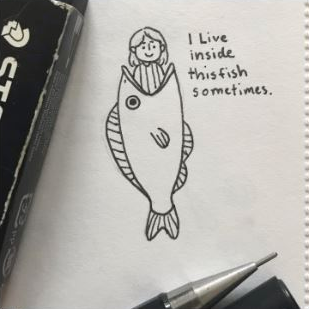 I Live
inside
this fish
sometimes.
STA